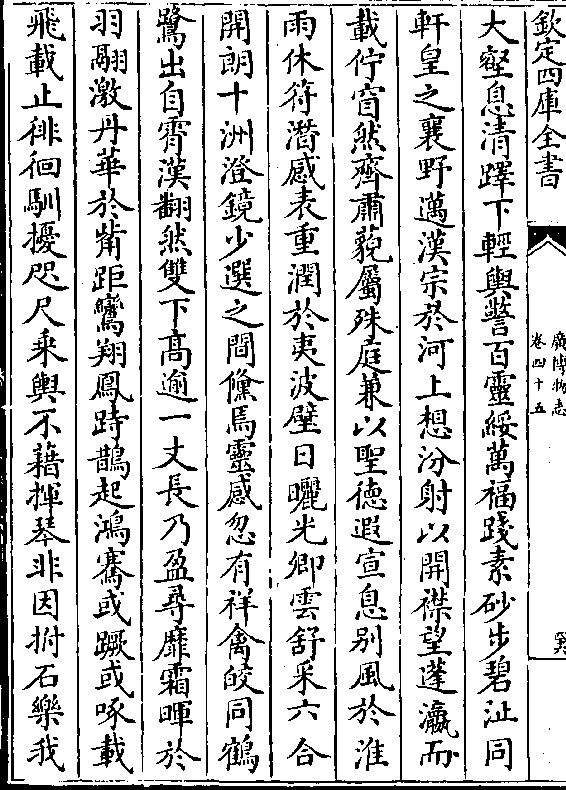 欽定四庫全書
廣博物志
卷四十五
大壑息清蹕下輕輿警百靈綏萬福踐素砂步碧沚同
軒皇之襄野邁漢宗於河上想汾射以開襟望蓬瀛而
載佇窅然齊肅藐屬殊庭兼以聖徳遐宣息别風於淮
雨休符潛感表重潤於夷波璧日曬光卿雲舒采六合
開朗十洲澄鏡少選之間儵焉靈感忽有祥禽皎同鶴
鷺出自霄漢翻然雙下髙逾一丈長乃盈尋靡霜暉於
羽翮激丹華於觜距鸞翔鳳跱鵲起鴻騫或蹶或啄載
飛載止徘徊馴擾咫尺乘輿不藉揮琴非因拊石樂我